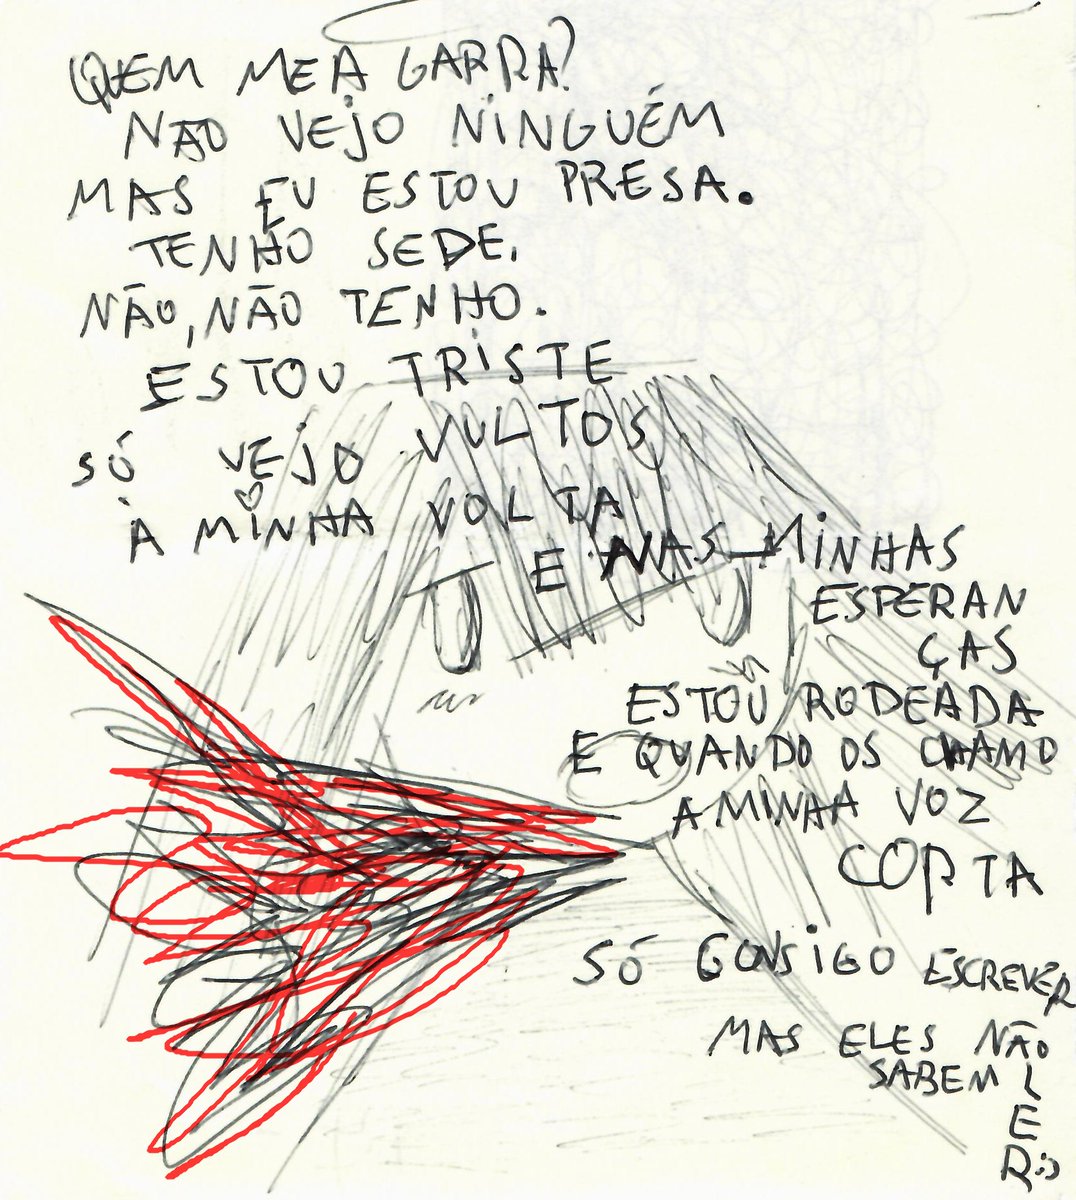 QUEM ME AGARRA?
NÃO VEJO NINGUÉM
MAS EU ESTOU PRESA.
TENHO SEDE.
NÃO, NÃO TENHO.
ESTOU TRISTE
SÓ VEJO VULTOS
À MINHA VOLTA
E NAS MINHAS
ESPERAN
ÇAS
ESTOU RODEADA
E QUANDO OS CHAMO
A MINHA VOZ
CORTA
SÓ CONSIGO ESCREVER
MAS ELES NÃO
SABEM
LER :)